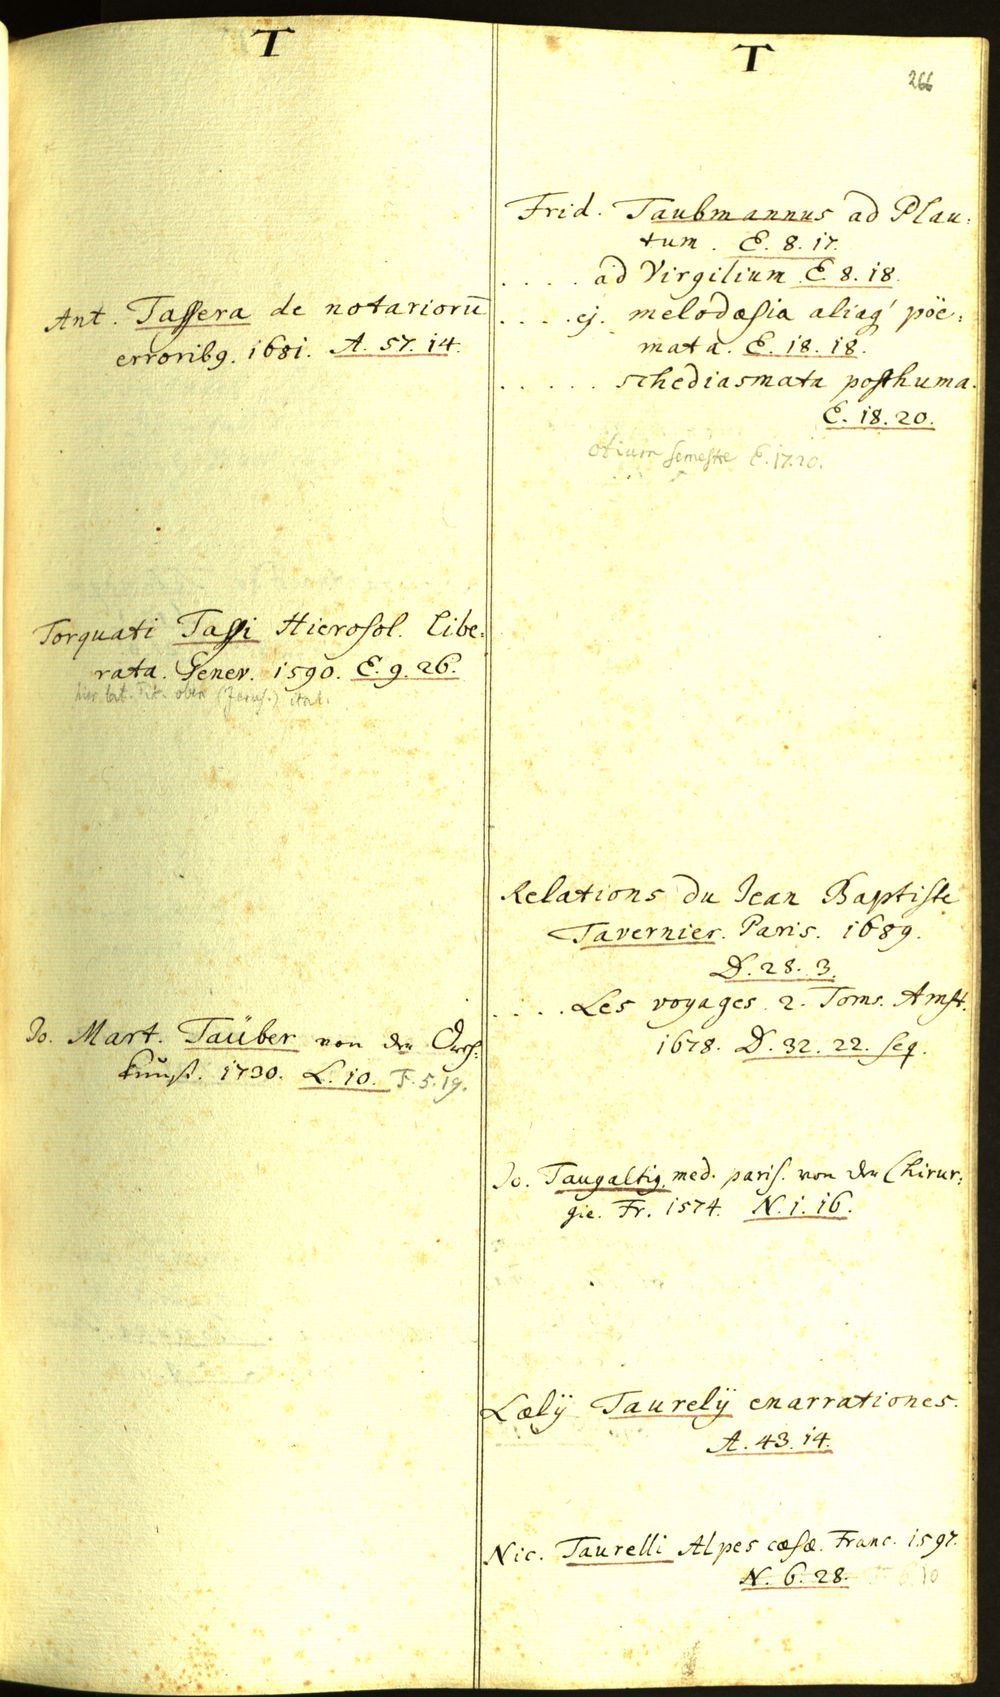 T
Ant. Tassera de notarioru̅
erroribq. 1681. A. 57. 14.
Torquati Tassi Hierosol. Libe:
rata. Genev. 1590. E. 9. 26.
hier lat. Tit. oben (Jerus.) ital.
Jo. Mart. Täuber von der Dreh:
kunst. 1730. L. 10. F. 5. 19.
T
266
Frid. Taubmannus ad Plau:
tum. E. 8. 17.
. . . . ad Virgilium E. 8. 18.
. . . . ej. melodæsia aliaq' pöe:
mata. E. 18. 18.
. . . . . schediasmata posthuma.
E. 18. 20.
otium semestre E. 17. 20.
Relations du Jean Baptiste
Tavernier. Paris. 1689.
D. 28. 3.
. . . . Les voyages 2. Toms. Amst.
1678. D. 32. 22. seq.
Jo. Taugaltig. med. paris. von der Chirur:
gie. Fr. 1574. N. 1. 16.
Lælÿ Taurelÿ enarrationes.
A. 43. 14.
Nic. Taurelli Alpes cæsæ. Franc. 1597.
N. 6. 28.